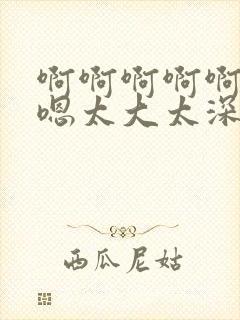 啊啊啊啊啊
嗯太大太深
西瓜尼姑